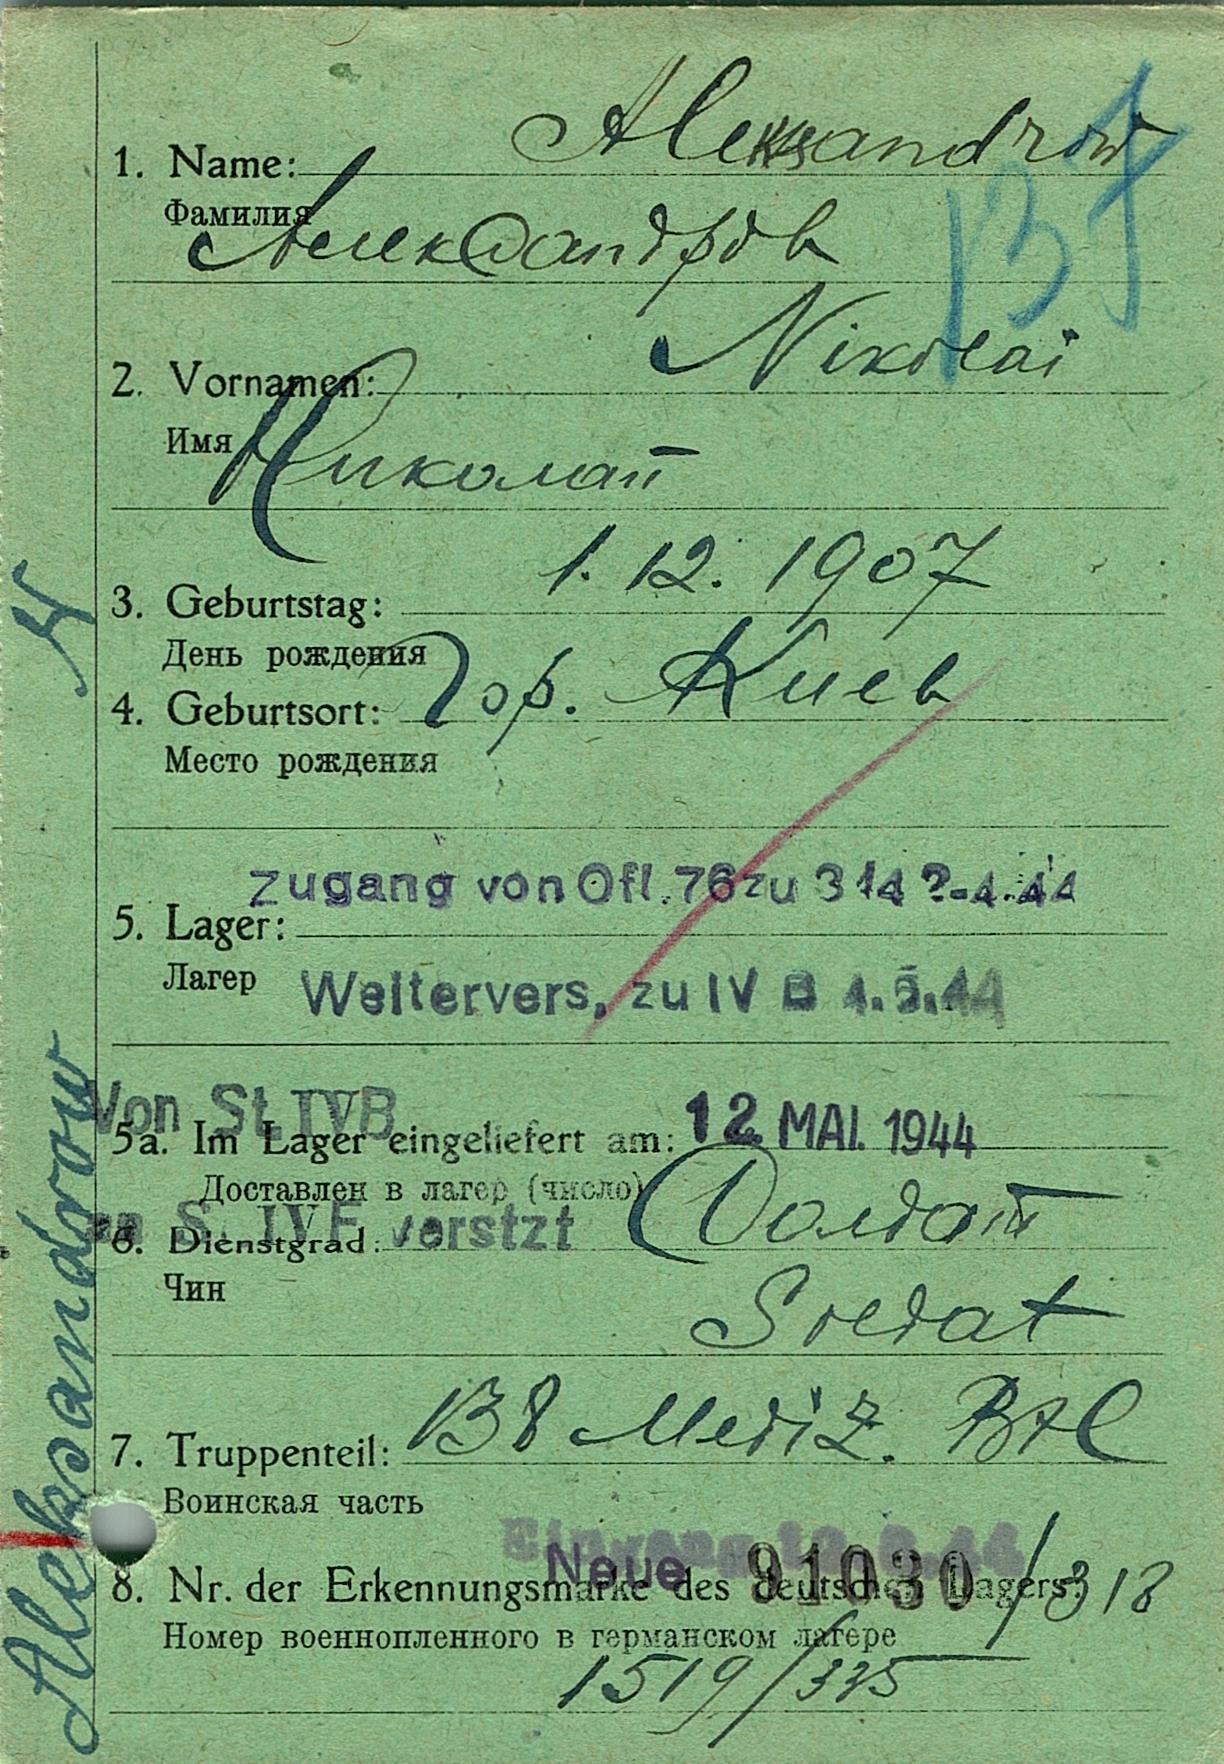 Aleksandrow
1. Name:
Фамилия
Александров
137
Nikolai
2. Vornamen:
Имя
Николай
1.12.1907
3. Geburtstag:
День рождения
4. Geburtsort: Гор. Киев
Место рождения
Zugang von Ofl. 76 zu 314 ?-4.44
5. Lager:
Лагер
Weitervers. zu IV B 1.5.44
Von St. IVB
5a. Im Lager eingeliefert am: 12. MAI. 1944
Доставлен в лагер (число)
an St. IVF verstzt
6. Dienstgrad: Солдат
Чин
Soldat
7. Truppenteil: 138 Mediz. Btl
Воинская часть
Eingang
8. Nr. der Erkennungsmarke des deutschen Lagers:
Neue 91030 / 318
Номер военнопленного в германском лагере
1519/325
Aleksandrow